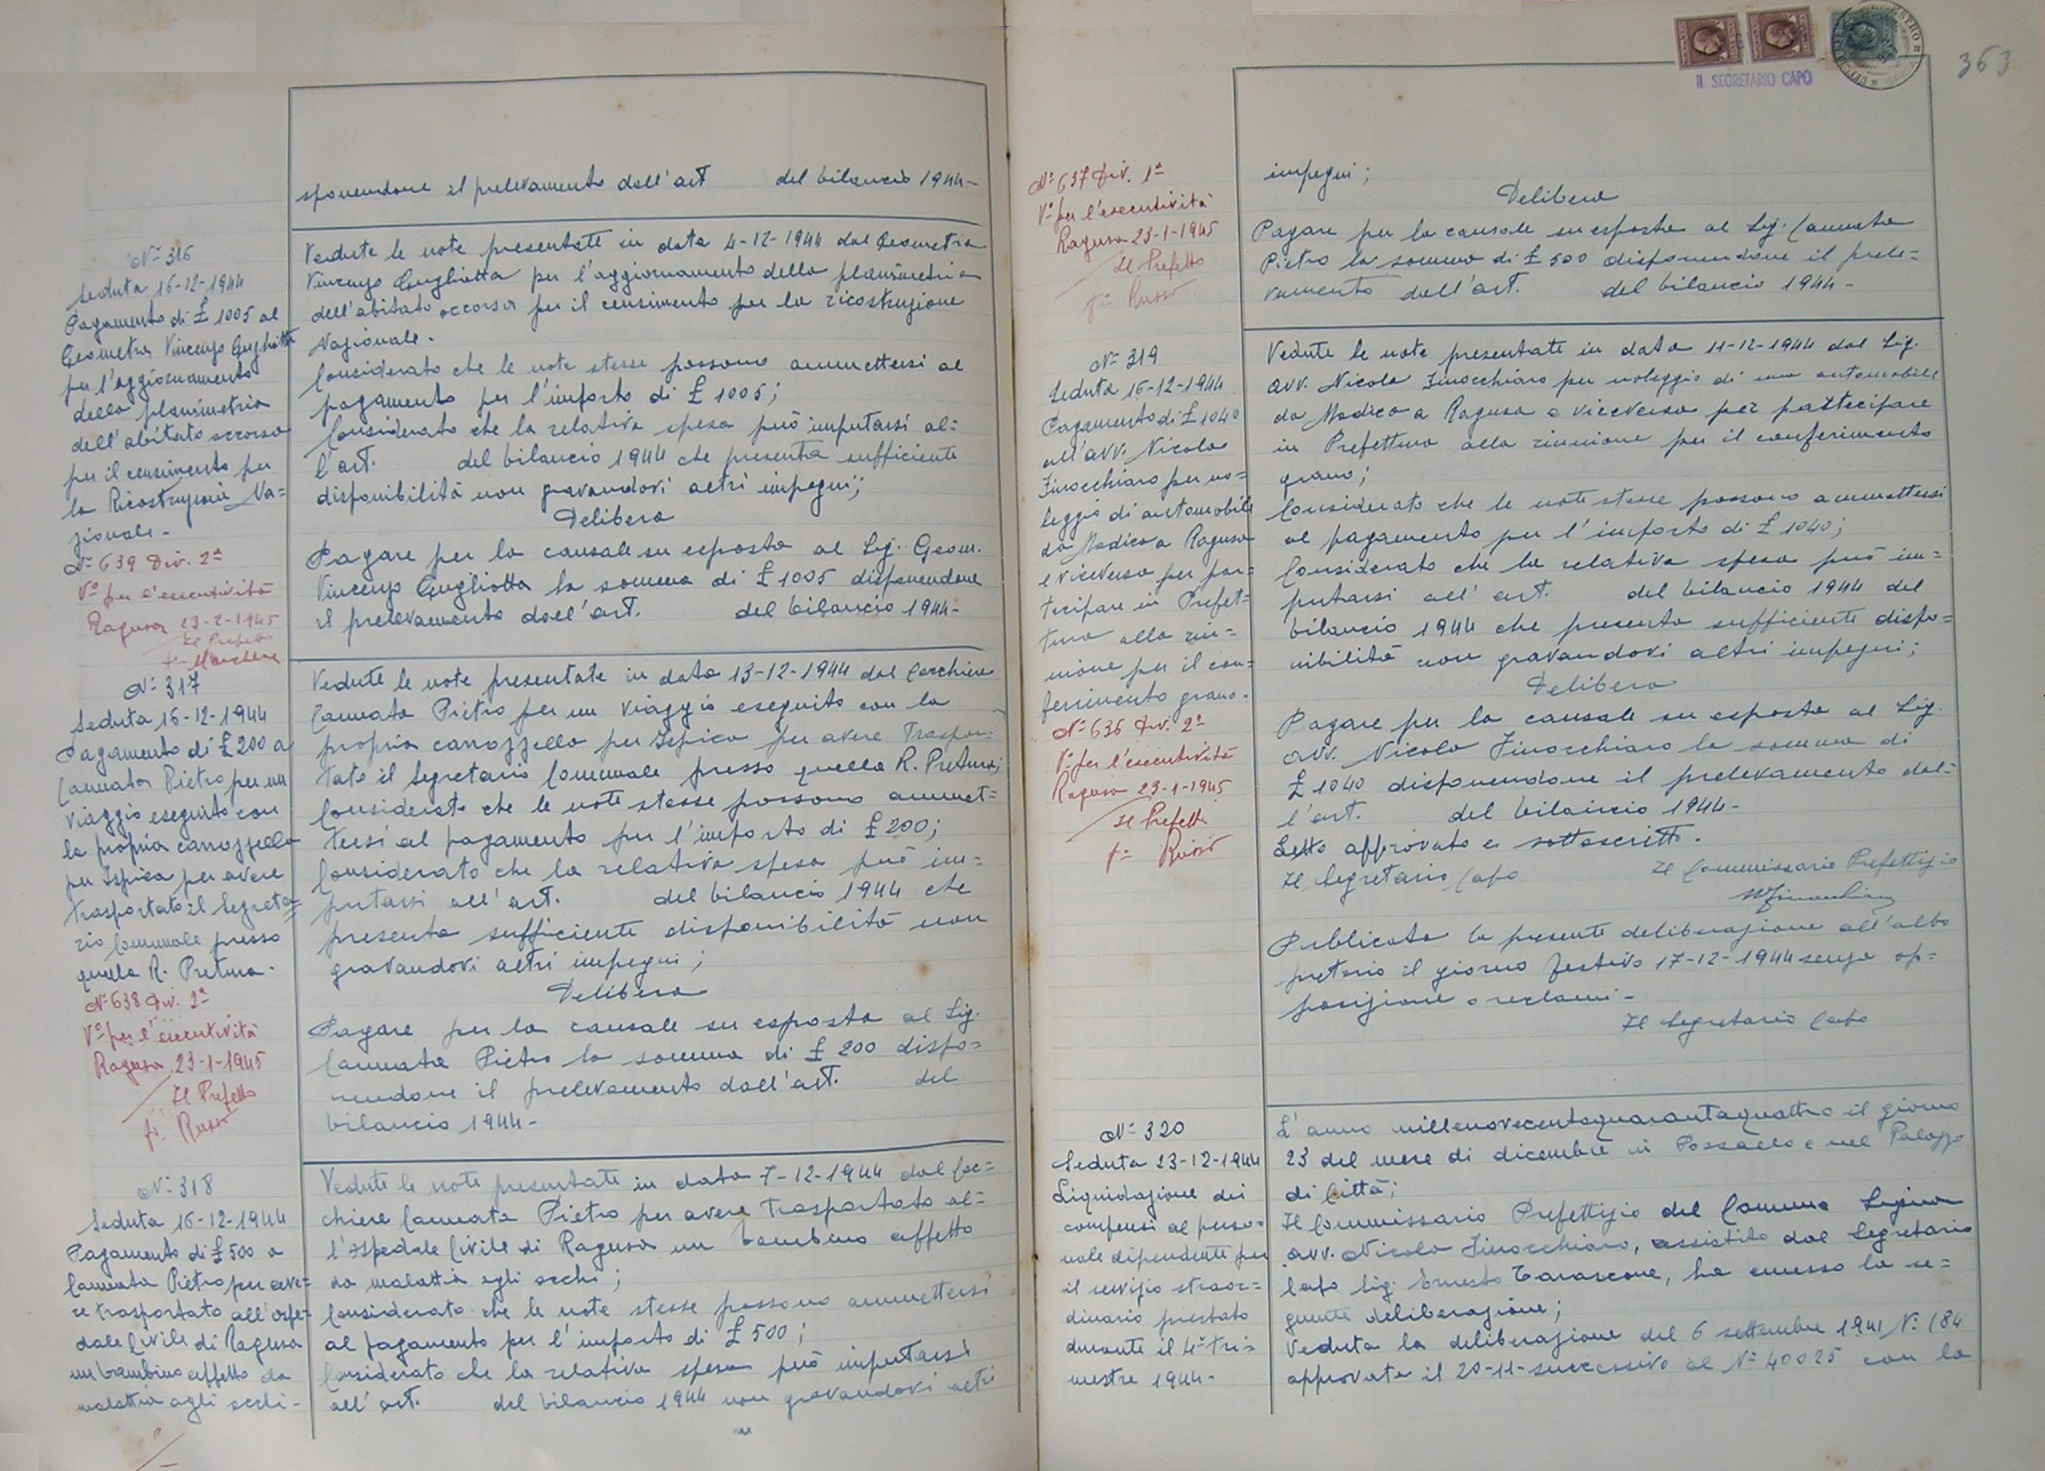 sponendone il prelevamento dall'art del bilancio 1944-
N= 316
Seduta 16-12-1944
Pagamento di £ 1005 al
Geometra Vincenzo Gugliotta
per l'aggiornamento
della planimetria
dell'abitato occorsa
per il censimento per
la Ricostruzione Na=
zionale-
N= 639 Div. 2ª
V° per l'esecutività
Ragusa 23-2-1945
Il Prefetto
Vedute le note presentate in data 4-12-1944 dal Geometra
Vincenzo Gugliotta per l'aggiornamento della planimetria
dell'abitato occorsa per il censimento per la ricostruzione
Nazionale-
Considerato che le note stesse possono ammettersi al
pagamento per l'importo di £ 1005;
Considerato che la relativa spesa può imputarsi al=
l'art. del bilancio 1944 che presenta sufficiente
disponibilità non gravandovi altri impegni;
Delibera
Pagare per la causale su esposta al Sig. Geom.
Vincenzo Gugliotta la somma di £ 1005 disponendone
il prelevamento dall'art. del bilancio 1944-
N= 317
Seduta 16-12-1944
Pagamento di £ 200 a
Cannata Pietro per un
viaggio eseguito con
la propria carrozzella
per Ispica per avere
trasportato il Segreta=
rio Comunale presso
quella R. Pretura-
N= 638 Div. 2ª
V° per l'esecutività
Ragusa 23-1-1945
Il Prefetto
f= Russo
Vedute le note presentate in data 13-12-1944 dal Cocchiere
Cannata Pietro per un viaggio eseguito con la
propria carrozzella per Ispica per avere Traspor=
tato il Segretario Comunale presso quella R. Pretura;
Considerato che le note stesse possono ammet=
tersi al pagamento per l'importo di £ 200;
Considerato che la relativa spesa può im=
putarsi all'art. del bilancio 1944 che
presenta sufficiente disponibilità non
gravandovi altri impegni;
Delibera
Pagare per la causale su esposta al Sig.
Cannata Pietro la somma di £ 200 dispo=
nendone il prelevamento dall'art. del
bilancio 1944-
N= 318
Seduta 16-12-1944
Pagamento di £ 500 a
Cannata Pietro per ave=
re trasportato all'ospe=
dale Civile di Ragusa
un bambino affetto da
malattia agli occhi-
Vedute le note presentate in data 7-12-1944 dal Coc=
chiere Cannata Pietro per avere Trasportato al=
l'Ospedale Civile di Ragusa un bambino affetto
da malattia agli occhi;
Considerato che le note stesse possono ammettersi
al pagamento per l'importo di £ 500;
Considerato che la relativa spesa può imputarsi
all'art. del bilancio 1944 non gravandovi altri
IL SEGRETARIO CAPO
363
impegni;
Delibera
Pagare per la causale su esposta al Sig. Cannata
Pietro la somma di £ 500 disponendone il prele=
vamento dall'art. del bilancio 1944-
N= 637 Div. 1ª
V° per l'esecutività
Ragusa 23-1-1945
Il Prefetto
f= Russo
N= 319
Seduta 16-12-1944
Pagamento di £ 1040
all'avv. Nicola
Finocchiaro per no=
leggio di automobile
da Modica a Ragusa
e viceversa per par=
tecipare in Prefet=
tura alla riu=
nione per il con=
ferimento grano.
N= 636 Div. 2ª
V° per l'esecutività
Ragusa 23-1-1945
Il Prefetto
f= Russo
Vedute le note presentate in data 11-12-1944 dal Sig.
avv. Nicola Finocchiaro per noleggio di una automobile
da Modica a Ragusa e viceversa per partecipare
in Prefettura alla riunione per il conferimento
grano;
Considerato che le note stesse possono ammettersi
al pagamento per l'importo di £ 1040;
Considerato che la relativa spesa può im=
putarsi all'art. del bilancio 1944 del
bilancio 1944 che presenta sufficiente dispo=
nibilità non gravandovi altri impegni;
Delibera
Pagare per la causale su esposta al Sig.
avv. Nicola Finocchiaro la somma di
£ 1040 disponendone il prelevamento dal=
l'art. del bilancio 1944-
Letto approvato e sottoscritto.
Il Segretario Capo Il Commissario Prefettizio
Pubblicata la presente deliberazione all'albo
pretorio il giorno festivo 17-12-1944 senza op=
posizione o reclami-
Il Segretario Capo
N= 320
Seduta 23-12-1944
Liquidazione dei
compensi al perso=
nale dipendente per
il servizio straor=
dinario prestato
durante il 4° tri=
mestre 1944-
L'anno millenovecentoquarantaquattro il giorno
23 del mese di dicembre in Pozzallo e nel Palazzo
di Città;
Il Commissario Prefettizio del Comune Signor
avv. Nicola Finocchiaro, assistito dal Segretario
Capo Sig. Ernesto Tarascone, ha emesso la se=
guente deliberazione;
Veduta la deliberazione del 6 settembre 1941 N= 184
approvata il 20-11-successivo al N= 40025 con la